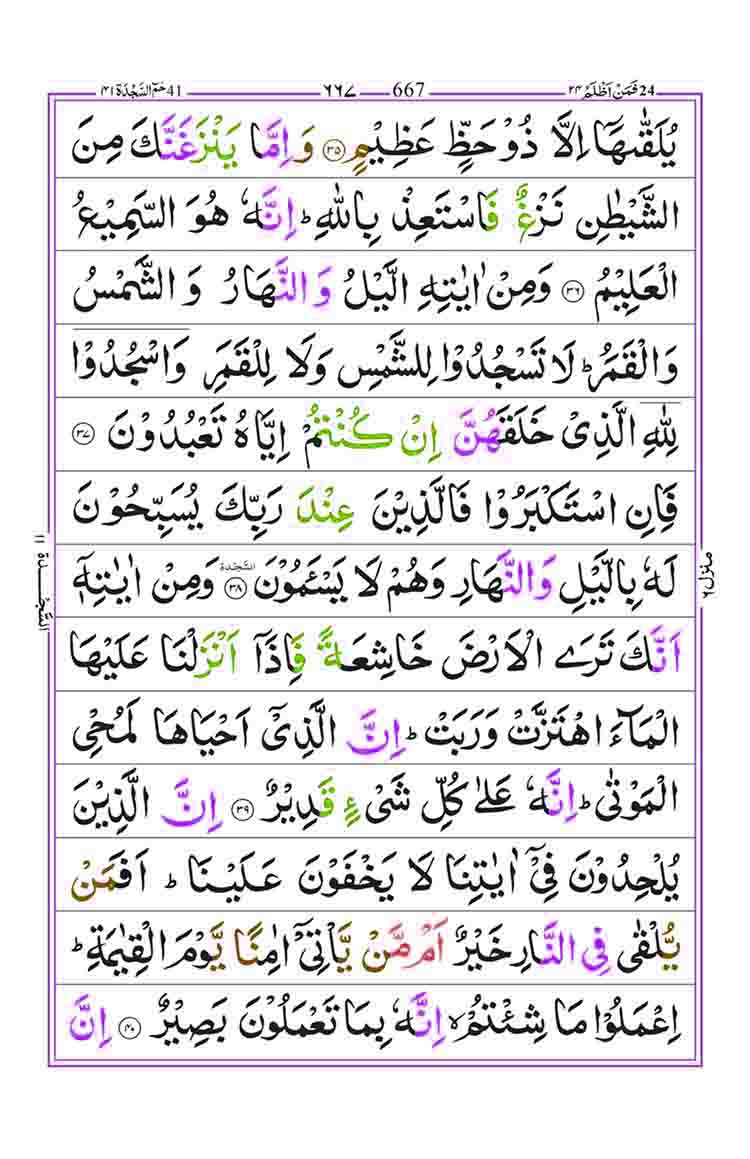 41 حٰمٓ السَّجْدَة ٤١
٦٦٧ 667
24 فَمَنْ اَظْلَمُ ٢٤
يُلَقّٰىهَاۤ اِلَّا ذُوْ حَظٍّ عَظِيْمٍ ۝۳۵ وَ اِمَّا يَنْزَغَنَّكَ مِنَ
الشَّيْطٰنِ نَزْغٌ فَاسْتَعِذْ بِاللّٰهِؕ اِنَّهٗ هُوَ السَّمِيْعُ
الْعَلِيْمُ ۝۳۶ وَمِنْ اٰيٰتِهِ الَّيْلُ وَ النَّهَارُ وَ الشَّمْسُ
وَ الْقَمَرُؕ لَا تَسْجُدُوْا لِلشَّمْسِ وَلَا لِلْقَمَرِ وَاسْجُدُوْا
لِلّٰهِ الَّذِىْ خَلَقَهُنَّ اِنْ كُنْتُمْ اِيَّاهُ تَعْبُدُوْنَ ۝۳۷
فَاِنِ اسْتَكْبَرُوْا فَالَّذِيْنَ عِنْدَ رَبِّكَ يُسَبِّحُوْنَ
لَهٗ بِالَّيْلِ وَالنَّهَارِ وَهُمْ لَا يَسْئَمُوْنَ ۝۳۸ السَّجْدَة وَمِنْ اٰيٰتِهٖۤ
اَنَّكَ تَرَى الْاَرْضَ خَاشِعَةً فَاِذَاۤ اَنْزَلْنَا عَلَيْهَا
الْمَآءَ اهْتَزَّتْ وَرَبَتْؕ اِنَّ الَّذِىْۤ اَحْيَاهَا لَمُحْىِ
الْمَوْتٰىؕ اِنَّهٗ عَلٰى كُلِّ شَىْءٍ قَدِيْرٌ ۝۳۹ اِنَّ الَّذِيْنَ
يُلْحِدُوْنَ فِىْۤ اٰيٰتِنَا لَا يَخْفَوْنَ عَلَيْنَاؕ اَفَمَنْ
يُّلْقٰى فِى النَّارِ خَيْرٌ اَمْ مَّنْ يَّاْتِىْۤ اٰمِنًا يَّوْمَ الْقِيٰمَةِؕ
اِعْمَلُوْا مَا شِئْتُمْۙ اِنَّهٗ بِمَا تَعْمَلُوْنَ بَصِيْرٌ ۝۴۰ اِنَّ
منزل ٦
السَّجْدَة ١١